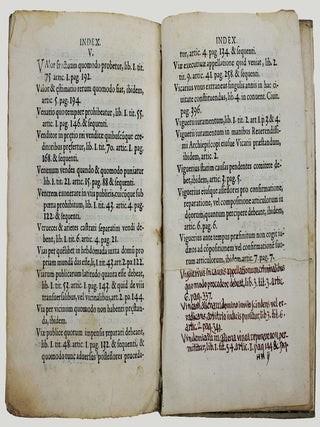 INDEX.
V.
VAlor fructuum quomodo probetur, lib. 1. tit.
75 artic. 1. pag. 192.
Valor & æstimatio rerum quomodo fiat, ibidem,
artic. 5. pag. 194.
Venatio quo tempore prohibeatur, lib. 1. tit. 55.
artic. 1. pag. 146. & sequenti.
Venditor in pretio rei venditæ quibuscũque cre-
ditoribus præfertur, lib. 1. tit. 70. artic. 1. pag.
168. & sequenti.
Venenum vendas quando & quomodo puniatur
lib. 1. tit. 21. artic. 15. pag. 88 & sequenti.
Ventrem exonerare in vius publicis, vicisque sub
pœna prohibitum, lib. 1. tit. 43. artic. 4. pag.
122. & sequenti.
Verveces & arietes castrati separatim vendi de-
bent, lib. 1. tit. 6. artic. 4. pag. 21.
Vias per quibet in hebdomada satra domũ pro
priam mundã
Viarum publicarum latitudo quanta esse debeat,
lib. 1. tit. 52. artic. 1. pag. 142. & quid de viis
transversalibus, vel vicinalibus, art. 2. pa. 144.
Vias per vicinum quomodo non habenti præstan-
da, ibidem.
Viæ publicæ quorum impensis reparari debeant,
lib. 1. tit. 48. artic. 1. pag. 132. & sequenti, &
quomodo tunc adversus possessores proceda-
INDEX.
tur, artic. 4. pag. 134. & sequenti.
Viæ executivæ appellatione quid veniat, lib. 2.
tit. 9. artic. 41. pag. 258 & sequenti.
Vicarius unus extraneus singulis annis in hac ci-
vitate constituendus, lib. 4. in convent. Cium
pag. 396.
Viguerii iuramentum, lib. 1. tit. 2. art. 1. p. 2 & 4.
Viguerii iuramentum in manibus Reverendissi-
mi Archiepiscopi eiusve Vicarii præstandum,
ibidem, artic. 2.
Viguerius statim causas pendentes comitere de-
bet, ibidem, artic. 2. pag. 5.
Viguerius eiusque assessores pro confirmatione,
reparatione, vel compositione articulorum in-
quorum, quantum percipere debeant, ibidem,
artic. 6. pag. 6.
Viguerius ante tempus præfinitum non cogit te-
neri ad compositionem vel confirmationem fue-
rum articulorum, ibidem, artic. 7. pag. 7.
Viguerius in causis appellationum criminalibus
quomodo procedere debeat, lib. 3. tit. 4. artic.
6. pag. 337.
artic. 2. pag. 341.
Vindemia in
mittitur, lib. 1. tit. 54. artic. 1. pag. 144 & seq.